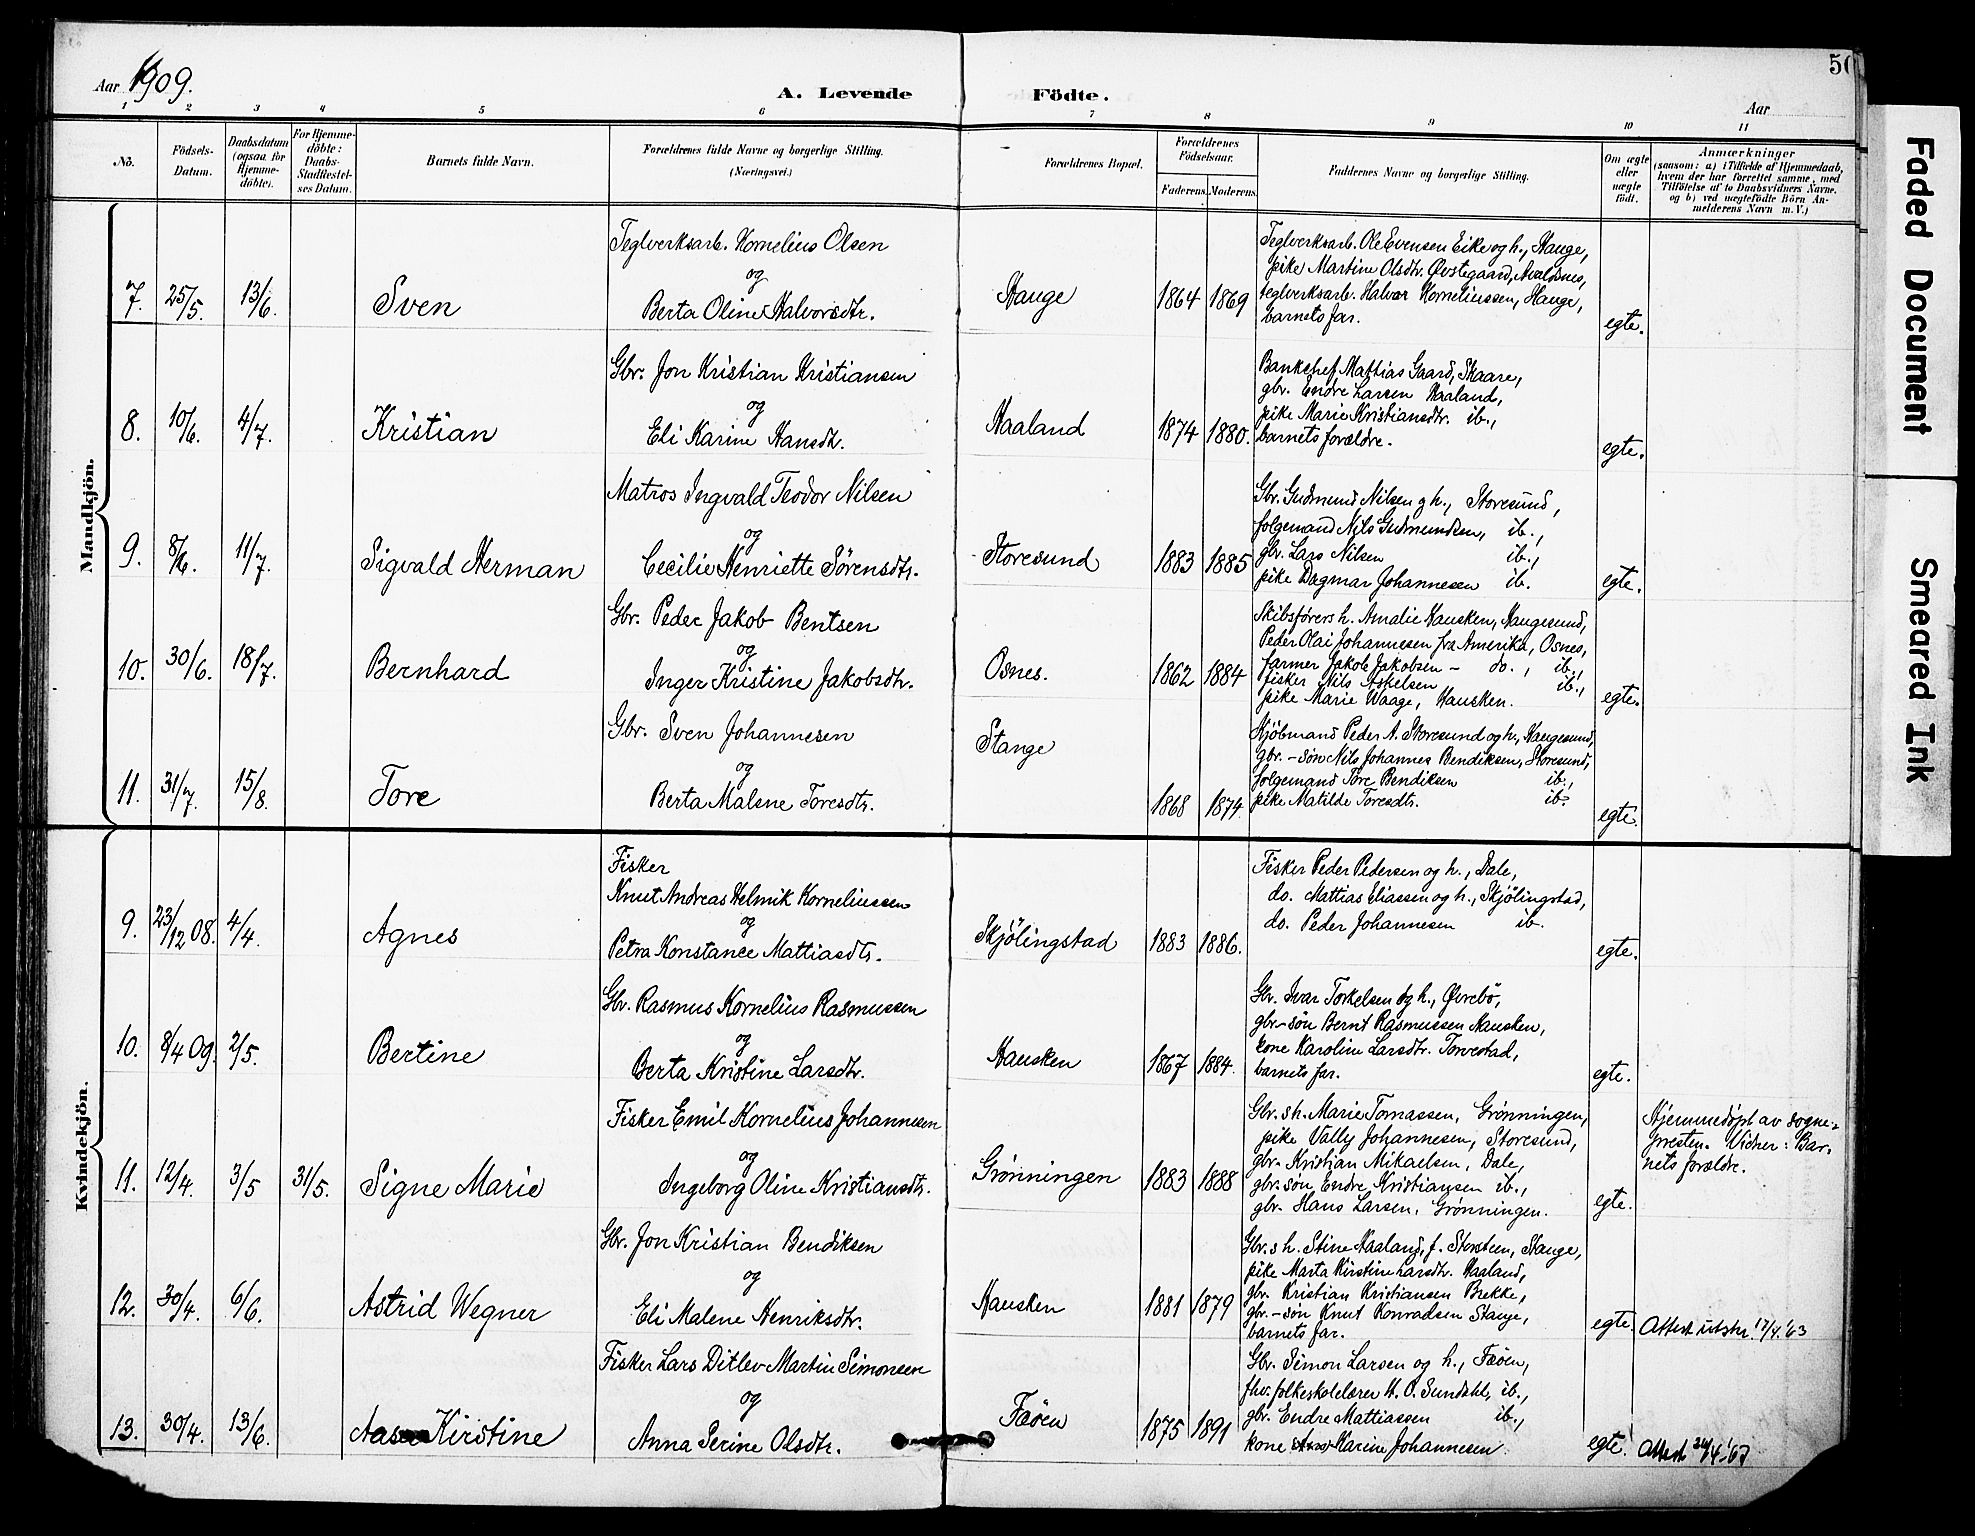 Aar 1909.
A. Levende Födte.
Aar
50
1 2 3 4 5 6 7 8 9 10 11
No.
Födsels-Datum.
Daabsdatum (ogsaa for Hjemme-döbte).
For Hjemme-döbte: Daabs-Stadfæstel-ses Datum.
Barnets fulde Navn.
Forældrenes fulde Navne og borgerlige Stilling. (Næringsvei.)
Forældrenes Bopæl.
Forældrenes Födselsaar.
Faderens. Moderens.
Faddernes Navne og borgerlige Stilling.
Om ægte eller uægte födt.
Anmærkninger
(saasom: a) i Tilfælde af Hjemmedaab,
hvem der har forrettet samme, med
Tilföielse af to Daabsvidners Navne.
og b) ved uægtefödte Börn An-
melderens Navn m. V.)
Mandkjön.
7. 25/5. 13/6. Sven
Teglverksarb. Kornelius Olsen
og
Berta Oline Halvorsdtr.
Hauge 1864 1869
Teglverksarb. Ole Evensen Eike og h., Hauge,
pike Martine Olsdtr. Øvstegaard, Avaldsnes,
teglverksarb. Halvor Korneliussen, Hauge,
barnets far.
egte.
8. 10/6. 4/7. Kristian
Gbr. Jon Kristian Kristiansen
og
Eli Karine Hansdtr.
Haaland 1874 1880.
Bankchef Mattias Gaard, Skaare,
gbr. Endre Larsen Haaland,
pike Marie Kristiansdtr. ib.,
barnets forældre.
egte.
9. 8/6. 11/7. Sigvald Herman
Matros Ingvald Teodor Nilsen
og
Cecilie Henriette Sörensdtr.
Storesund 1883 1885
Gbr. Gudmund Nilsen og h., Storesund,
folgemand Nils Gudmundsen, ib.,
gbr. Lars Nilsen ib.,
pike Dagmar Johannesen ib.
egte.
10. 30/6. 18/7. Bernhard
Gbr. Peder Jakob Bentsen
og
Inger Kristine Jakobsdtr.
Osnes. 1862 1884
Skibsførers h. Amalie Hausken, Haugesund,
Peder Olai Johannesen fra Amerika, Osnes,
farmer Jakob Jakobsen - do., ib.,
fisker Nils Askelsen ib.,
pike Marie Waage, Hausken.
egte.
11. 31/7. 15/8. Tore
Gbr. Sven Johannesen
og
Berta Malene Toresdtr.
Stange 1868 1874.
Kjöbmand Peder A. Storesund og h., Haugesund,
gbr.-søn Nils Johannes Bendiksen, Storesund,
folgemand Tore Bendiksen ib.,
pike Matilde Toresdtr. ib.
egte.
Kvindekjön.
9. 23/12 08. 4/4. Agnes
Fisker
Knut Andreas Helmik Korneliussen
og
Petra Konstance Mattiasdtr.
Skjölingstad 1883 1886.
Fisker Peder Pedersen og h., Dale,
do. Mattias Eliassen og h., Skjölingstad,
do. Peder Johannesen ib.
egte.
10. 8/4 09. 2/5. Bertine
Gbr. Rasmus Kornelius Rasmussen
og
Berta Kristine Larsdtr.
Hausken 1867 1884.
Gbr. Ivar Torkelsen og h., Øvrebö,
gbr.-sön Bernt Rasmussen Hausken,
kone Karoline Larsdtr. Torvestad,
barnets far.
egte.
11. 12/4. 3/5 31/5. Signe Marie
Fisker Emil Kornelius Johannesen
og
Ingeborg Oline Kristiansdtr.
Grönningen 1883 1888
Gbr.s h. Marie Tomassen, Grönningen,
pike Vally Johannesen, Storesund,
gbr. Kristian Mikaelsen, Dale,
gbr.søn Endre Kristiansen ib.,
gbr. Hans Larsen, Grönningen.
egte.
Hjemmedöpt av sogne-
presten. Vidner: Bar-
nets forældre.
12. 30/4. 6/6. Astrid Wegner
Gbr. Jon Kristian Bendiksen
og
Eli Malene Henriksdtr.
Hausken 1881 1879
Gbr.s h. Stine Haaland, f. Storsteen, Stange,
pike Marta Kirstine Larsdtr. Haaland,
gbr. Kristian Kristiansen Brekke,
gbr.-søn Knut Konradsen Stange,
barnets far.
egte.
Attest utstr. 17/4.'63
13. 30/4. 13/6. Aase Kirstine
Fisker Lars Ditlev Martin Simonsen
og
Anna Serine Olsdtr.
Fæöen 1875 1891
Gbr. Simon Larsen og h., Fæöen,
fhv. folkeskolelærer H. O. Sundahl, ib.,
gbr. Endre Mattiassen ib.,
kone Karine Johannesen.
egte.
Attest
Faded Document
Smeared Ink